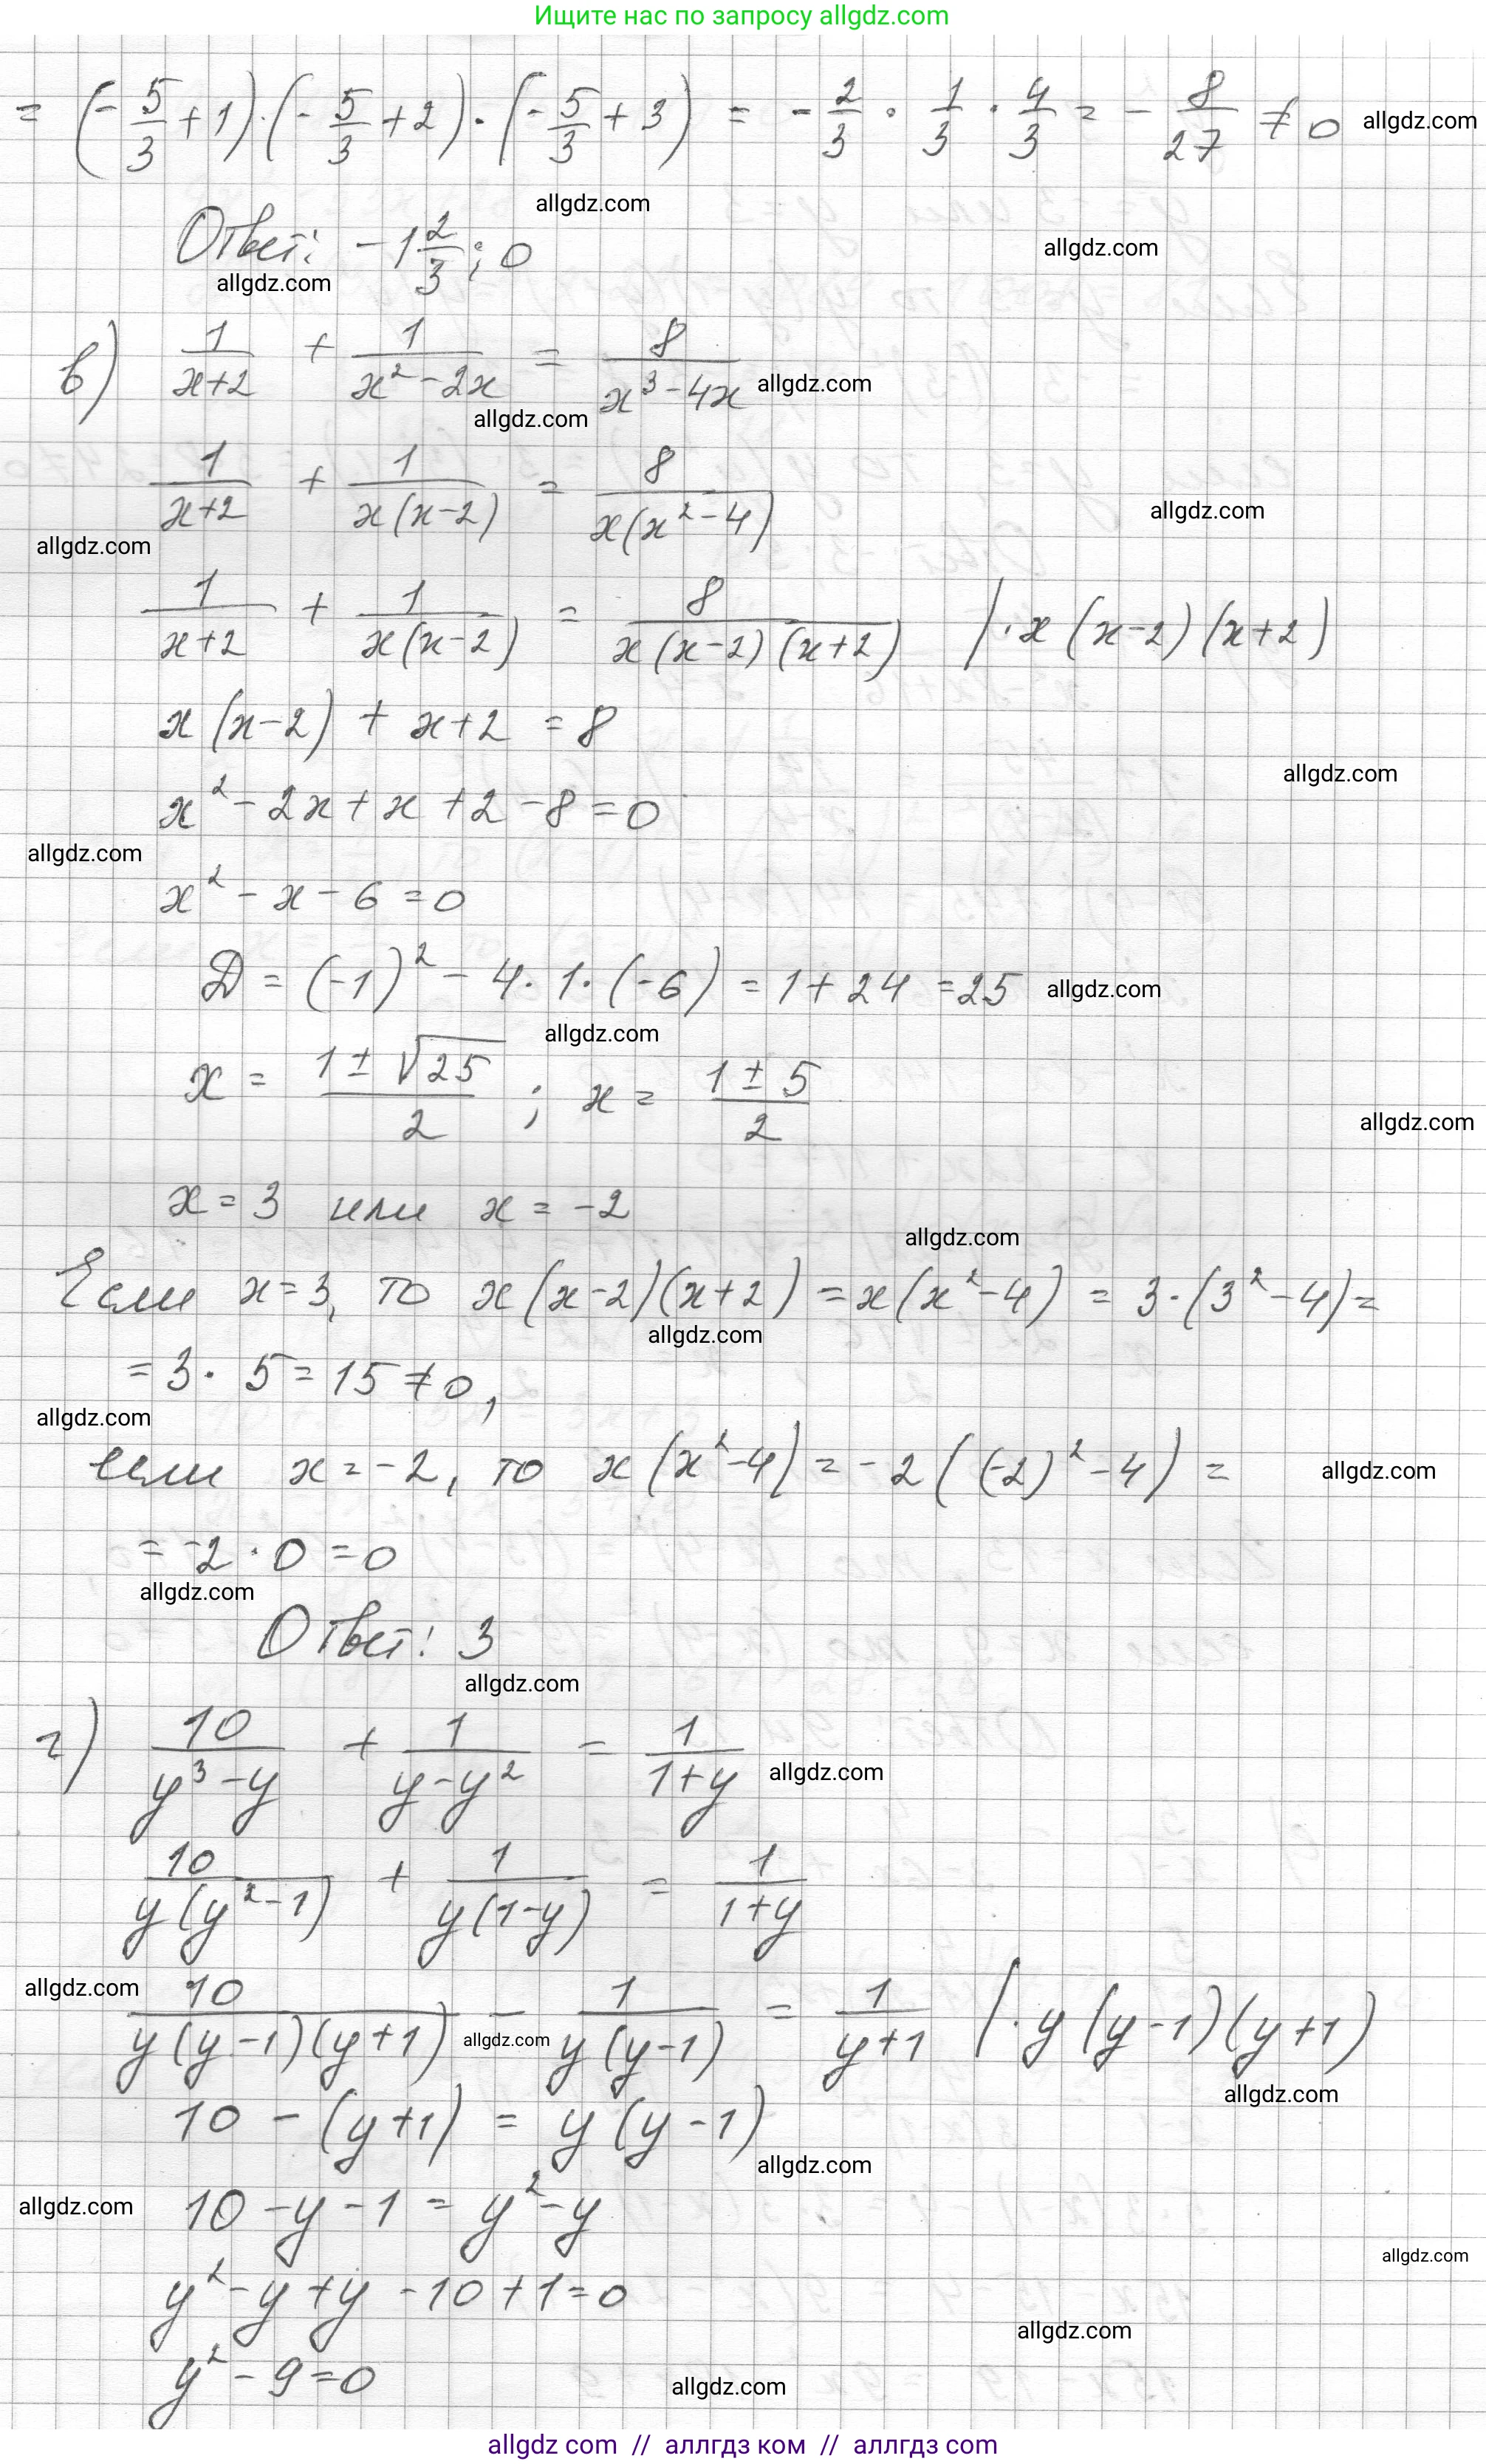 Ищите нас по запросу allgdz.com
= (-5/3 + 1)·(-5/3 + 2)·(-5/3 + 3) = -2/3 · 1/3 · 4/3 = -8/27 ≠ 0 allgdz.com
allgdz.com
Ответ: -1 2/3; 0 allgdz.com
allgdz.com
в) 1/(x+2) + 1/(x²-2x) = 8/(x³-4x) allgdz.com
allgdz.com
1/(x+2) + 1/(x(x-2)) = 8/(x(x²-4)) allgdz.com
allgdz.com
1/(x+2) + 1/(x(x-2)) = 8/(x(x-2)(x+2)) |·x(x-2)(x+2)
x(x-2) + x+2 = 8
allgdz.com
x²-2x+x+2-8=0
allgdz.com
x²-x-6=0
D = (-1)² - 4·1·(-6) = 1+24 = 25 allgdz.com
allgdz.com
x = (1±√25)/2 ; x = (1±5)/2
allgdz.com
x=3 или x=-2
allgdz.com
Если x=3, то x(x-2)(x+2) = x(x²-4) = 3·(3²-4)=
allgdz.com
= 3·5=15≠0,
allgdz.com
если x=-2, то x(x²-4) = -2((-2)²-4) = allgdz.com
= -2·0=0
allgdz.com
Ответ: 3
allgdz.com
г) 10/(y³-y) + 1/(y-y²) = 1/(1+y) allgdz.com
10/(y(y²-1)) + 1/(y(1-y)) = 1/(1+y)
allgdz.com
10/(y(y-1)(y+1)) - 1/(y(y-1)) = 1/(y+1) |·y(y-1)(y+1)
allgdz.com
allgdz.com
10-(y+1) = y(y-1)
allgdz.com
allgdz.com 10-y-1=y²-y
allgdz.com
y²-y+y-10+1=0
allgdz.com
y²-9=0 allgdz.com
allgdz com // аллгдз ком // аллгдз com